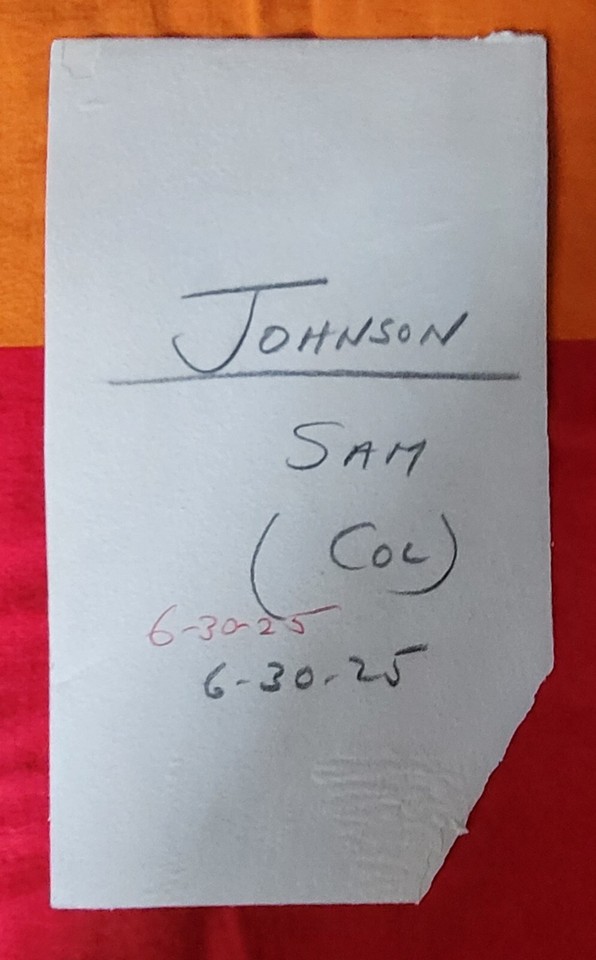 JOHNSON
SAM
(COL)
6-30-25
6-30-25